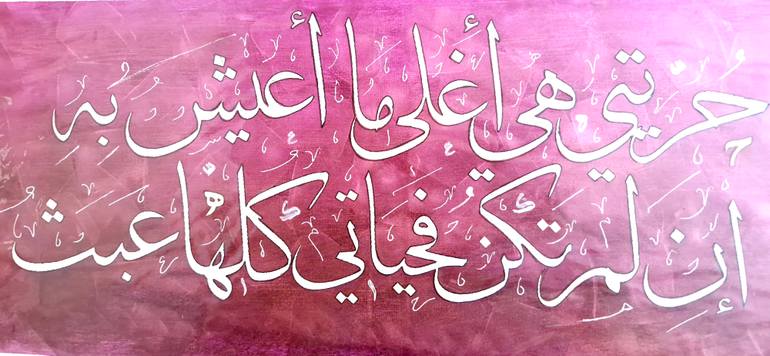 حُرِّيتي هي أغلى ما أعيش بِهِ
إن لم تكن فحياتي كلها عبث